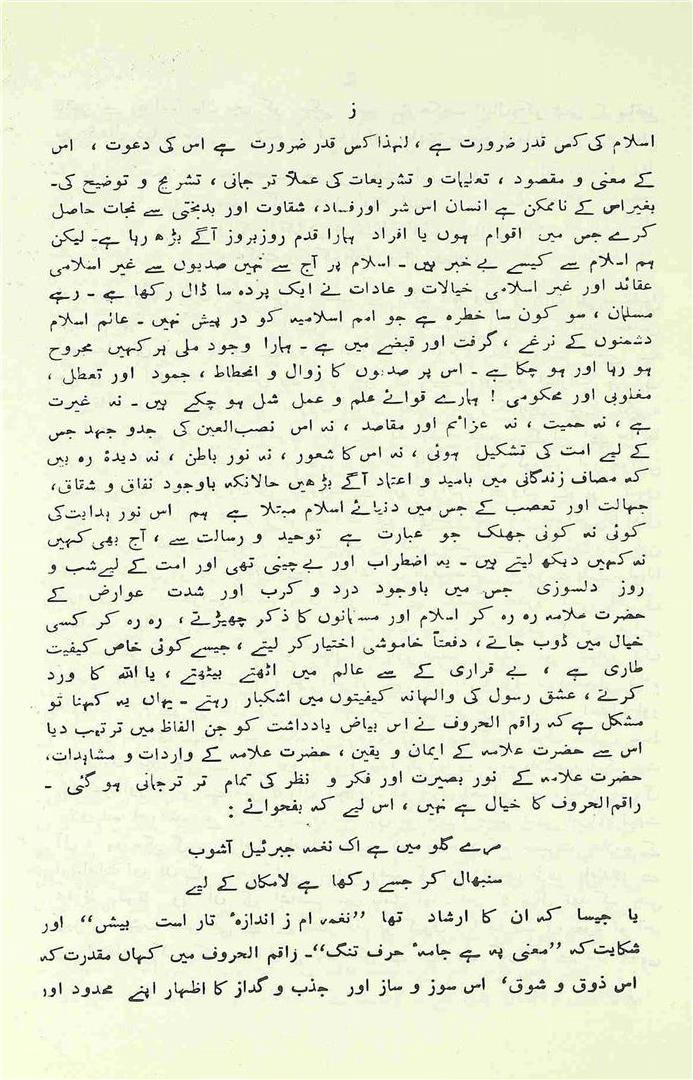 ز
اسلام کی کس قدر ضرورت ہے ، لہذا کس قدر ضرورت ہے اس کی دعوت ، اس
کے معنی و مقصود ، تعلیمات و تشریعات کی عملاً ترجمانی ، تشریح و توضیح کی۔
بغیر اس کے ناممکن ہے انسان اس شر اور فساد، شقاوت اور بدبختی سے نجات حاصل
کرے جس میں اقوام ہوں یا افراد ہمارا قدم روز بروز آگے بڑھ رہا ہے۔ لیکن
ہم اسلام سے کیسے بے خبر ہیں ۔ اسلام پر آج سے نہیں صدیوں سے غیر اسلامی
عقائد اور غیر اسلامی خیالات و عادات نے ایک پردہ سا ڈال رکھا ہے ۔ رہے
مسلمان ، سو کون سا خطرہ ہے جو امم اسلامیہ کو در پیش نہیں ۔ عالم اسلام
دشمنوں کے نرغے ، گرفت اور قبضے میں ہے ۔ ہمارا وجود ملی ہر کہیں مجروح
ہو رہا اور ہو چکا ہے ۔ اس پر صدیوں کا زوال و انحطاط ، جمود اور تعطل ،
مغلوبی اور محکومی ! ہمارے قوائے علم و عمل شل ہو چکے ہیں ۔ نہ غیرت
ہے ، نہ حمیت ، نہ عزائم اور مقاصد ، نہ اس نصب العین کی جدو جہد جس
کے لیے امت کی تشکیل ہوئی ، نہ اس کا شعور ، نہ نور باطن ، نہ دیدۂ رہ بیں
کہ مصاف زندگانی میں بامید و اعتماد آگے بڑھیں حالانکہ باوجود نفاق و شقاق،
جہالت اور تعصب کے جس میں دنیائے اسلام مبتلا ہے ہم اس نور ہدایت کی
کوئی نہ کوئی جھلک جو عبارت ہے توحید و رسالت سے ، آج بھی کہیں
نہ کہیں دیکھ لیتے ہیں ۔ یہ اضطراب اور بے چینی تھی اور امت کے لیے شب و
روز دلسوزی جس میں باوجود درد و کرب اور شدت عوارض کے
حضرت علامہ رہ رہ کر اسلام اور مسلمانوں کا ذکر چھیڑتے ، رہ رہ کر کسی
خیال میں ڈوب جاتے ، دفعتاً خاموشی اختیار کر لیتے ، جیسے کوئی خاص کیفیت
طاری ہے ، بے قراری کے سے عالم میں اٹھتے بیٹھتے ، یا اللہ کا ورد
کرتے ، عشق رسول کی والہانہ کیفیتوں میں اشکبار رہتے ۔ یہاں یہ کہنا تو
مشکل ہے کہ راقم الحروف نے اس بیاض یادداشت کو جن الفاظ میں ترتیب دیا
اس سے حضرت علامہ کے ایمان و یقین ، حضرت علامہ کے واردات و مشاہدات،
حضرت علامہ کے نور بصیرت اور فکر و نظر کی تمام تر ترجمانی ہو گئی ۔
راقم الحروف کا خیال ہے نہیں ، اس لیے کہ بفحوائے :
مرے گلو میں ہے اک نغمہ جبرئیل آشوب
سنبھال کر جسے رکھا ہے لامکاں کے لیے
یا جیسا کہ ان کا ارشاد تھا ’’نغمہ ام ز اندازۂ تار است بیش‘‘ اور
شکایت کہ ’’معنی پہ ہے جامۂ حرف تنگ‘‘۔ راقم الحروف میں کہاں مقدرت کہ
اس ذوق و شوق‘ اس سوز و ساز اور جذب و گداز کا اظہار اپنے محدود اور